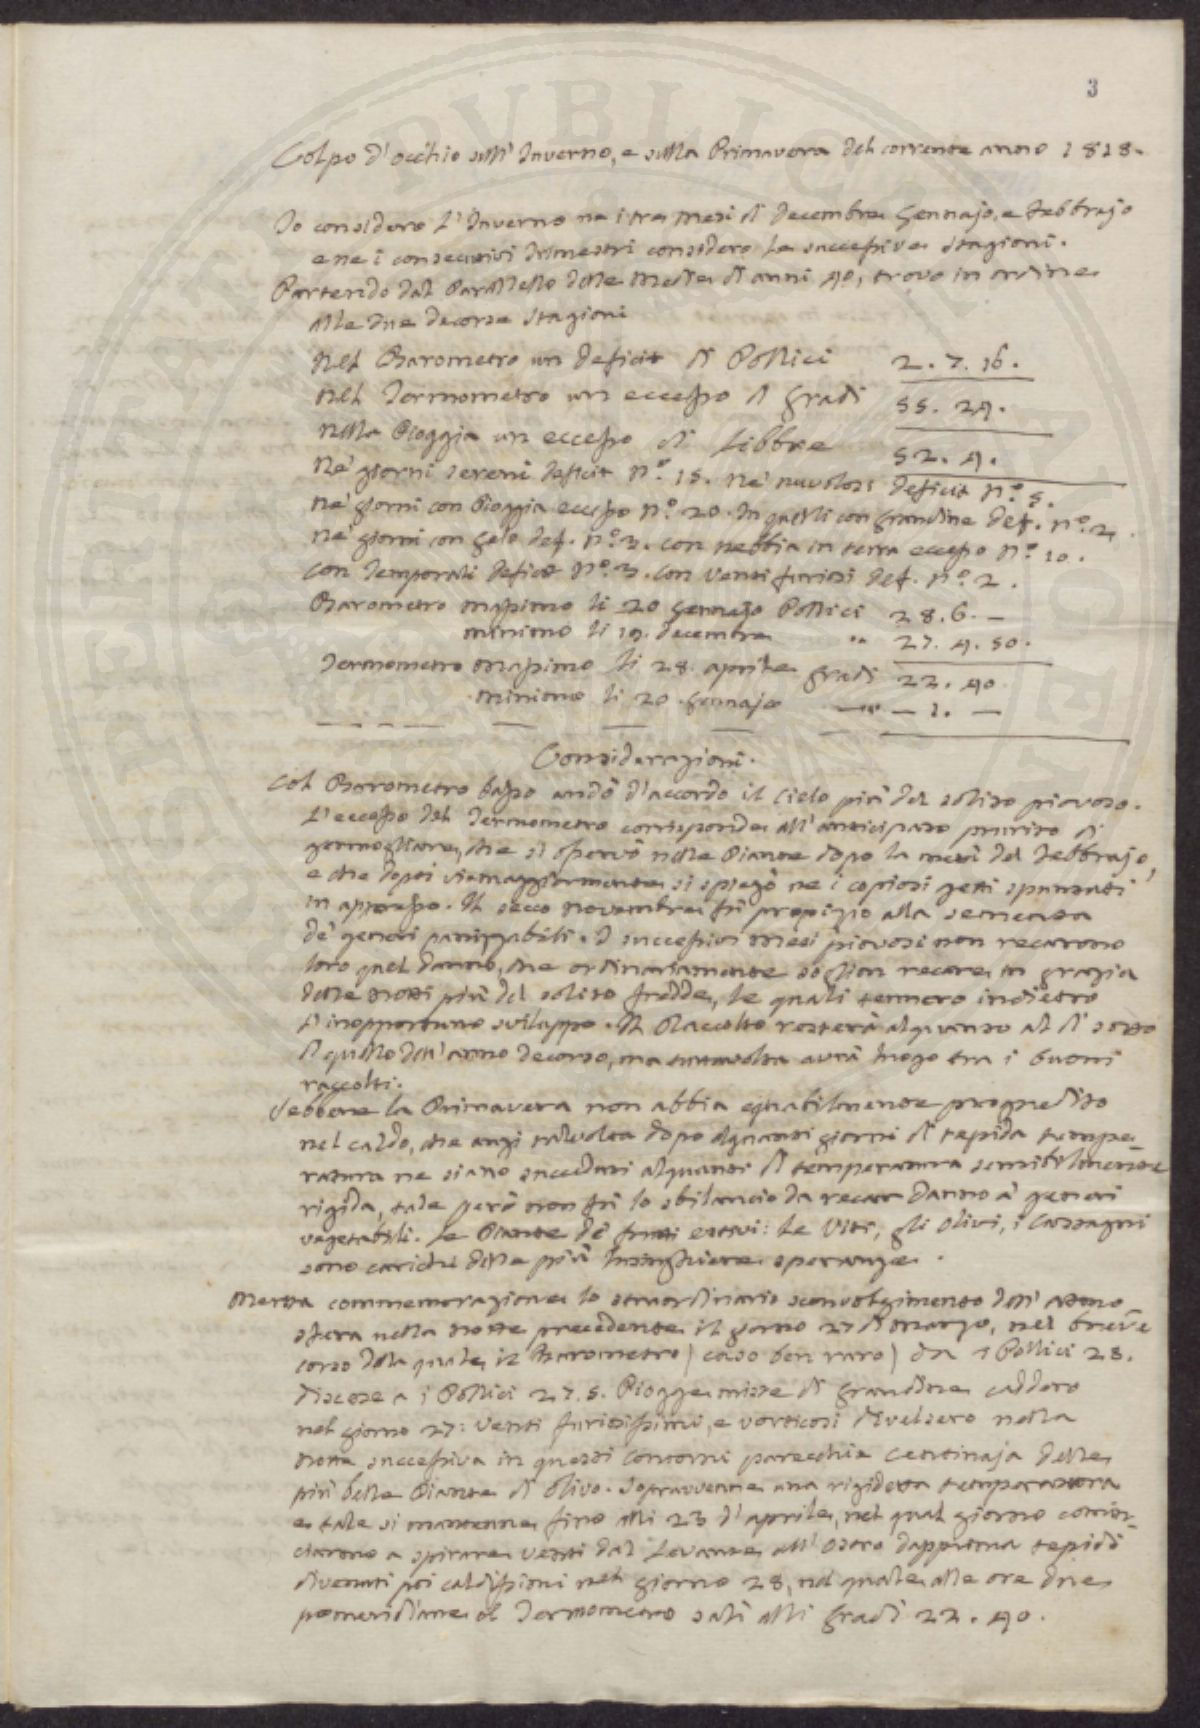 3
Colpo d'occhio sull'Inverno, e sulla Primavera del corrente anno 1818.
Io considero l'Inverno ne i tre mesi di Decembre Gennajo, e Febbrajo
e ne i consecutivi trimestri considero le successive stagioni.
Partendo dal Parallello delle Medie di anni 40, trovo in ordine
alle due decorse stagioni
Nel Barometro un deficit di Pollici 2. 7. 16.
Nel Termometro un eccesso di gradi 55. 24.
Nella Pioggia un eccesso di Libbre 52. 4.
Ne' giorni sereni deficit N.º 15. Ne' nuvolosi deficit N.º 5.
Ne' giorni con Pioggia eccesso N.º 20. In quelli con grandine def. N.º 2.
Ne' giorni con gelo def. N.º 3. con nebbia in terra eccesso N.º 10.
Con Temporali deficit N.º 3. con Venti furiosi def. N.º 2.
Barometro massimo li 20 Gennajo Pollici 28. 6. —
minimo li 19. Decembre " 27. 4. 50.
Termometro massimo li 28. aprile gradi 22. 40
minimo li 20 Gennajo — 1. —
Considerazioni.
Col Barometro basso andò d'accordo il Cielo più del solito piovoso.
L'eccesso del Termometro corrisponde all'anticipato prurito di
germogliare, che si osservò nelle Piante dopo la metà del Febbrajo,
e che dopoi viemaggiormente si spiegò ne i copiosi getti spuntati
in appresso. Il secco Novembre fù propizio alla sementa
de' generi panizzabili. I successivi Mesi piovosi non recarono
loro quel danno, che ordinariamente soglion recare in grazia
delle Notti più del solito fredde, le quali tennero indietro
l'inopportuno sviluppo. Il Raccolto resterà alquanto al di sotto
di quello dell'anno decorso, ma tuttavolta avrà luogo tra i buoni
raccolti.
Sebbene la Primavera non abbia equabilmente progredito
nel caldo, che anzi talvolta dopo alquanti giorni di tepida tempe-
ratura ne siano succeduti alquanti di temperatura sensibilmente
rigida, tale però non fù lo sbilancio da recar danno a' generi
vegetabili. Le Piante de' frutti estivi: le Viti, gli Olivi, i Castagni
sono carichi delle più lusinghiere speranze.
Merita commemorazione lo straordinario sconvolgimento dell'Atmo
sfera nella Notte precedente il giorno 27 di Marzo, nel breve
corso della quale il Barometro (caso ben raro) da i Pollici 28.
discese a i Pollici 27. 5. Piogge miste di grandine caddero
nel giorno 27: Venti furiosissimi, e vorticosi divelsero nella
Notte successiva in questi Contorni parecchie Centinaja delle
più belle Piante di Olivo. Sopravvenne una rigidetta temperatura
e tale si mantenne fino alli 23 d'aprile, nel qual giorno comin-
ciarono a spirare Venti dal Levante all'Ostro dapprima tepidi
divenuti poi caldissimi nel giorno 28, nel quale alle ore due
pomeridiane il Termometro salì alli gradi 22. 40.